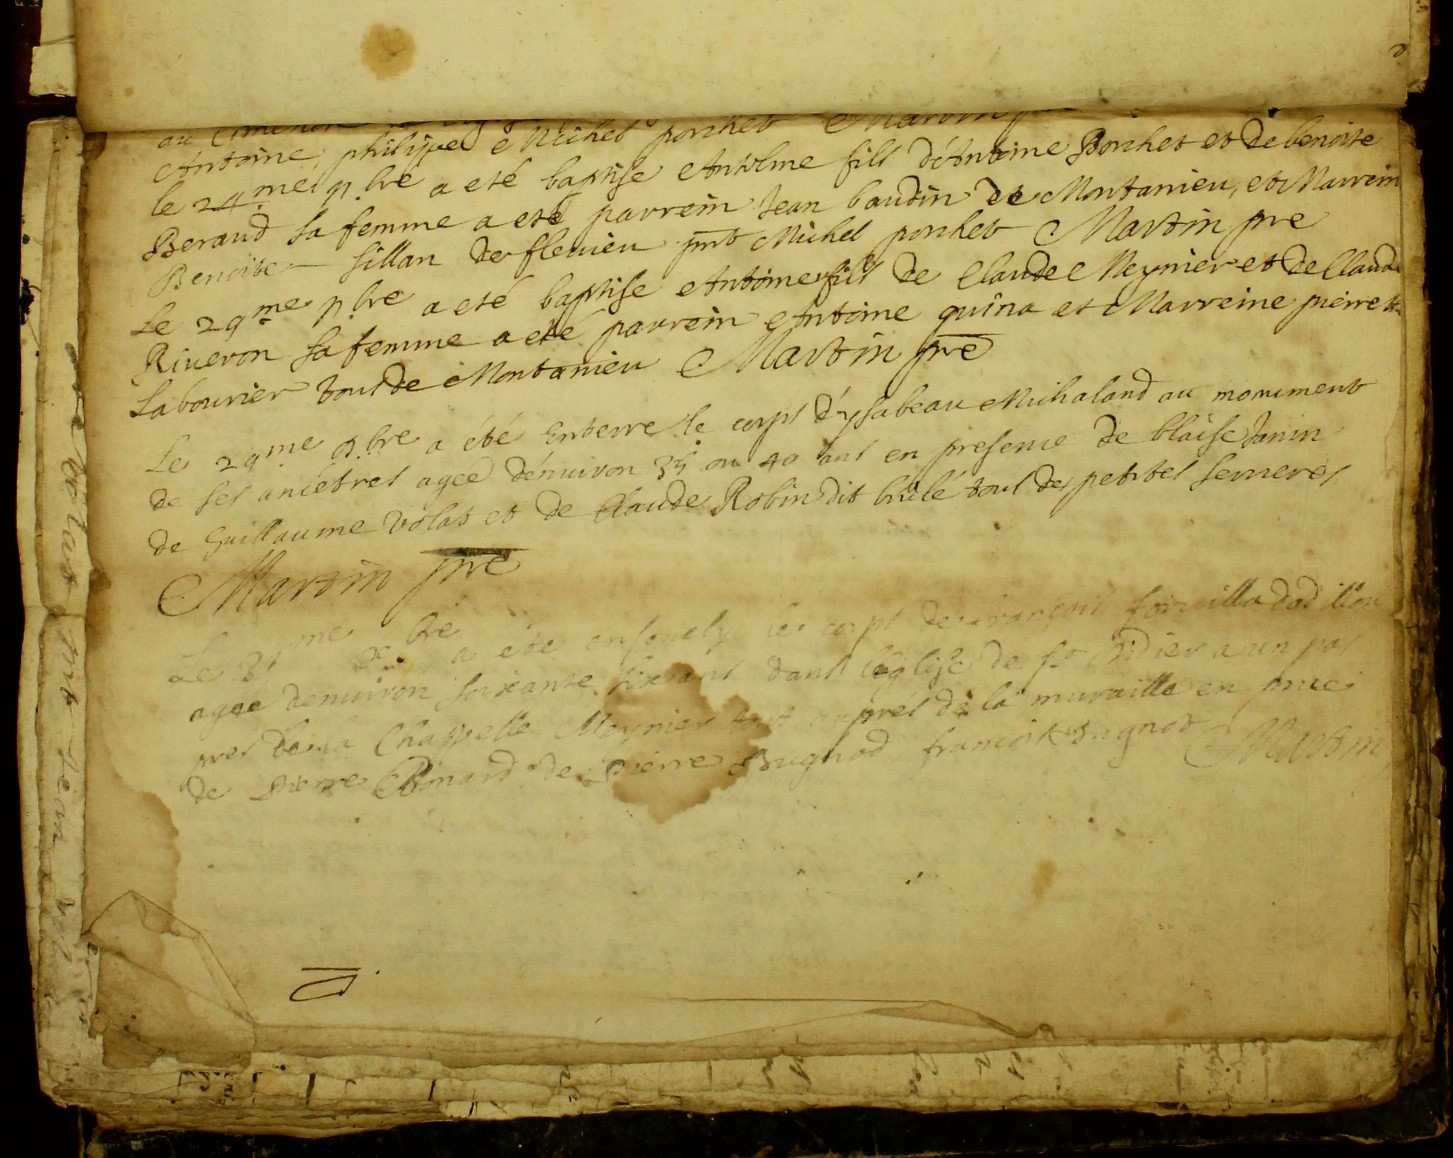 Antoine, philipe e Michel porchet Martin
le 24.me 9.bre a eté baptise Antelme fils d'Antoine Porchet et de benoite
Beraud sa femme a eté parrein Jean baudin de Montanieu, et Marrein
Benoite sillan de flevieu pnt Michel porchet Martin pre
Le 29me 9bre a eté baptise Antoine fils de Claude Meynier et de Claude
Riveron sa femme a eté parrein Antoine guina et Marreine pierrete
Labourier tous de Montanieu Martin pre
Le 29me 9.bre a été Enterre le corps d'ysabeau Michaland au monument
de ses ancetres agee d'environ 35 ou 40 ans en presence de blaise Janin
de Guillaume volat et de Claude Robin dit brûlé tous des petites serveres
Martin pre
Le 31me bre a été ensevely le corps de françois
agee d'environ soixante six ans dans l'église de st didier a un pas
pres de la Chappelle Meynier aupres de la muraille en
de Pierre de Pierre Bugnod françois Bugnot Martin